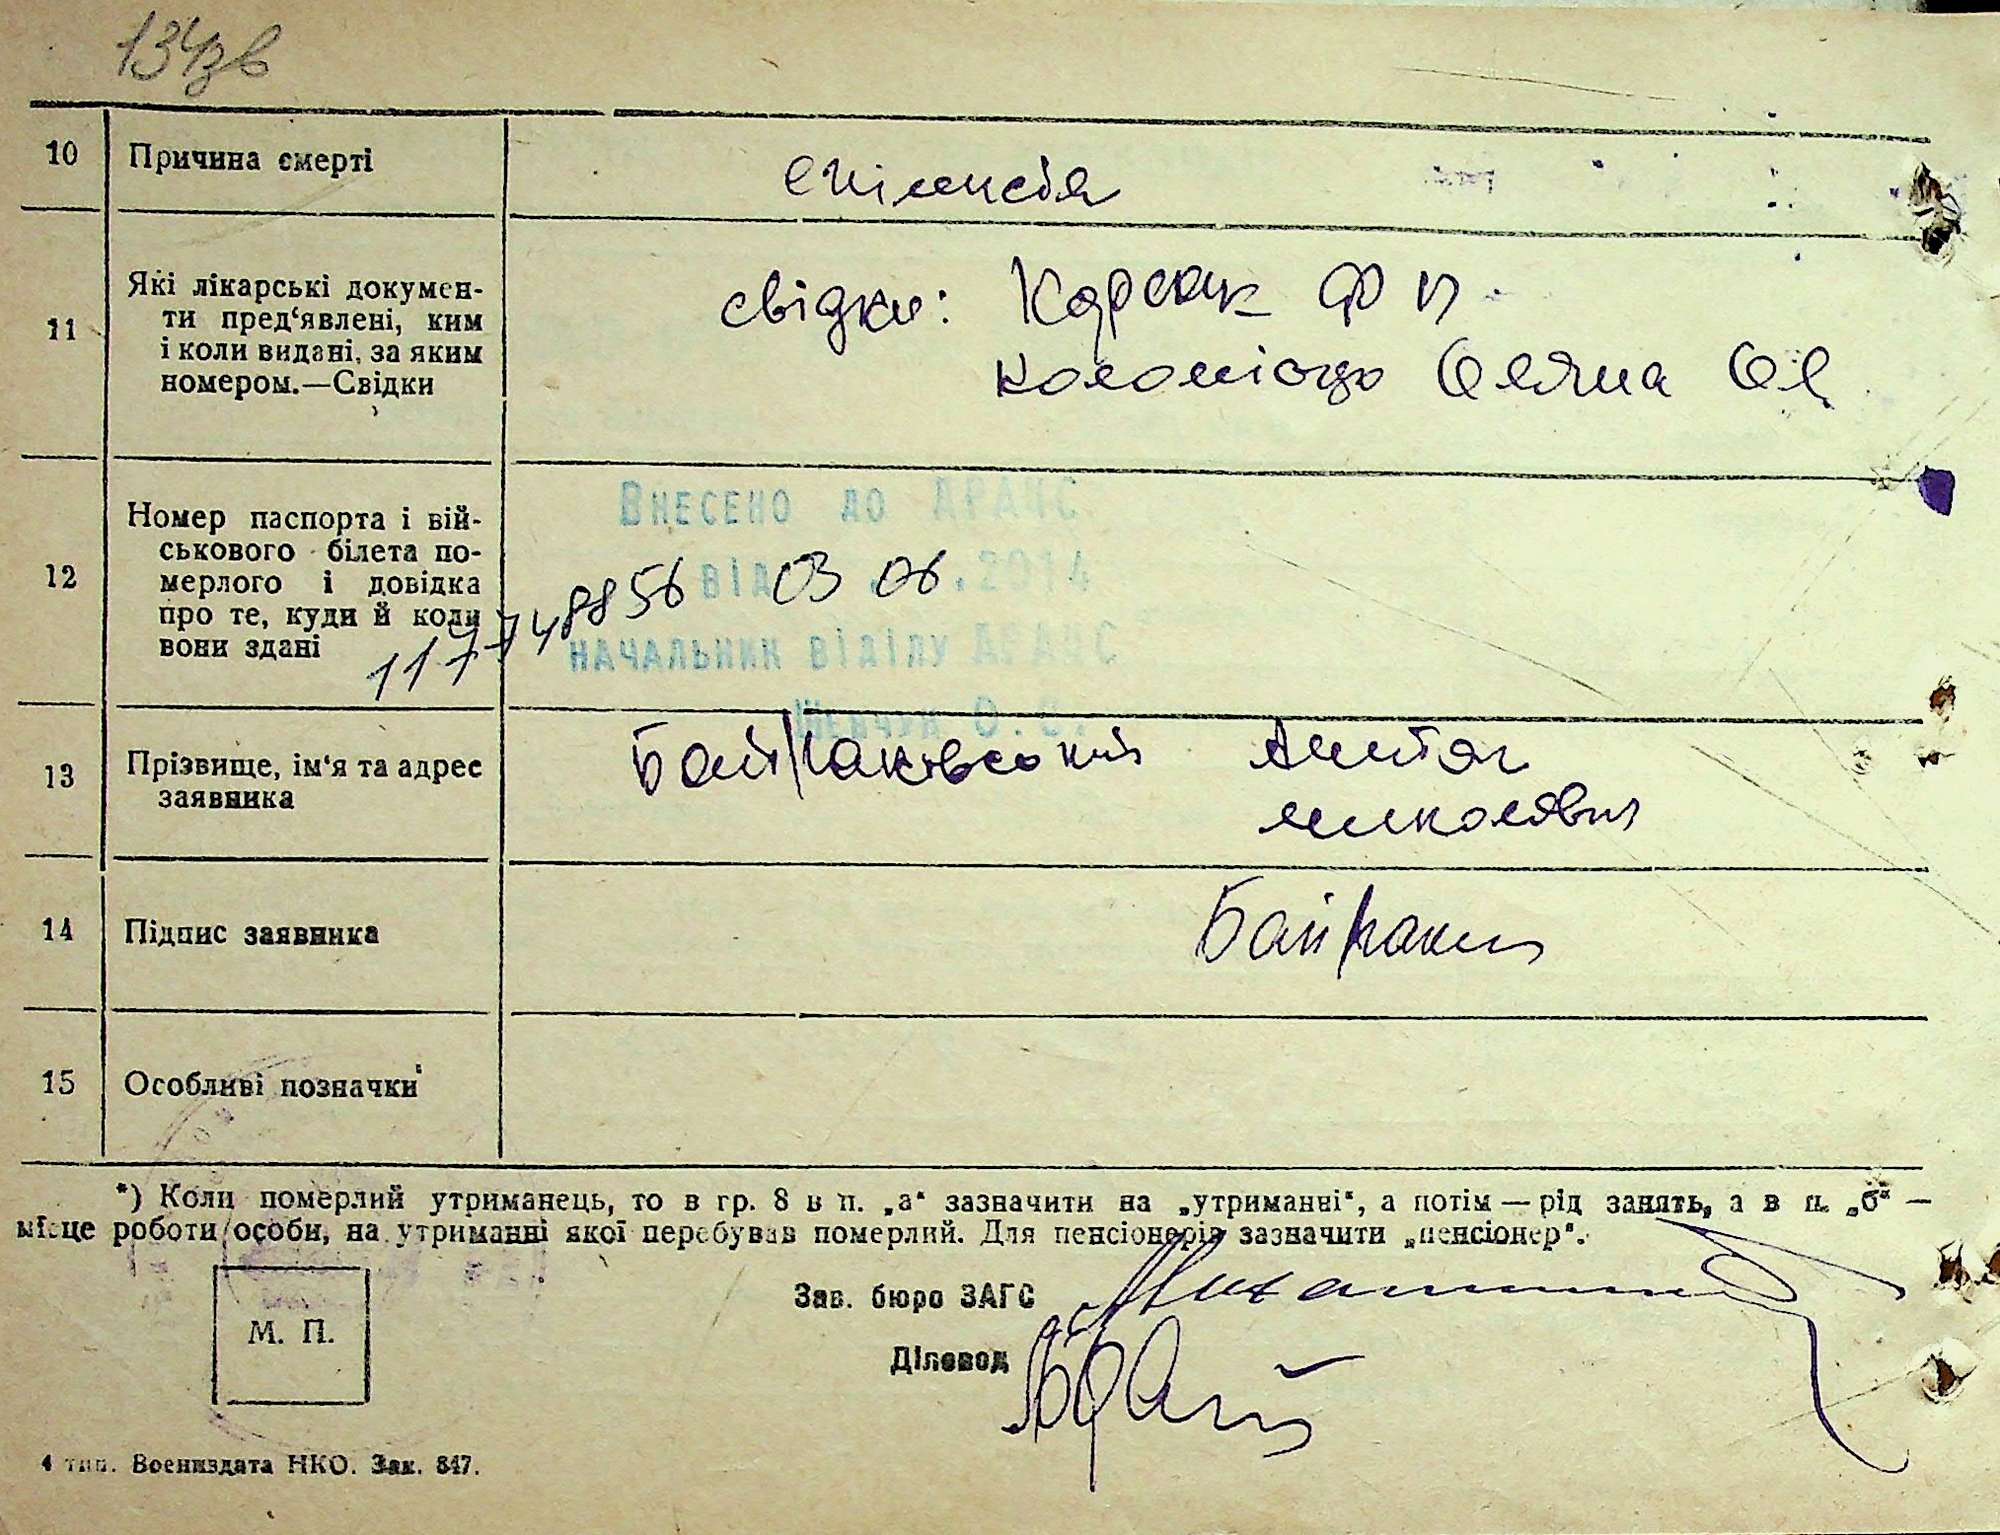 134зв
10 Причина смерті епілепсія
11 Які лікарські докумен-
ти пред‘явлені, ким
і коли видані, за яким
номером.—Свідки
свідки: Корсак Ф П
Коломієць
12 Номер паспорта і вій-
ськового білета по-
мерлого і довідка
про те, куди й коли
вони здані
Внесено до ДРАЦС
117748856 від 03 06.2014
начальник відділу ДРАЦС
Шевчук О.С.
13 Прізвище, ім‘я та адрес
заявника
Байраковський Антон
Миколаєвич
14 Підпис заявника
15 Особливі позначки
*) Коли померлий утриманець, то в гр. 8 в п. „а“ зазначити на „утриманні“, а потім — рід занять, а в п. „б“ —
місце роботи особи, на утриманні якої перебував померлий. Для пенсіонерів зазначити „пенсіонер“.
Зав. бюро ЗАГС
М. П.
Діловод
4 тип. Воениздата НКО. Зак. 847.